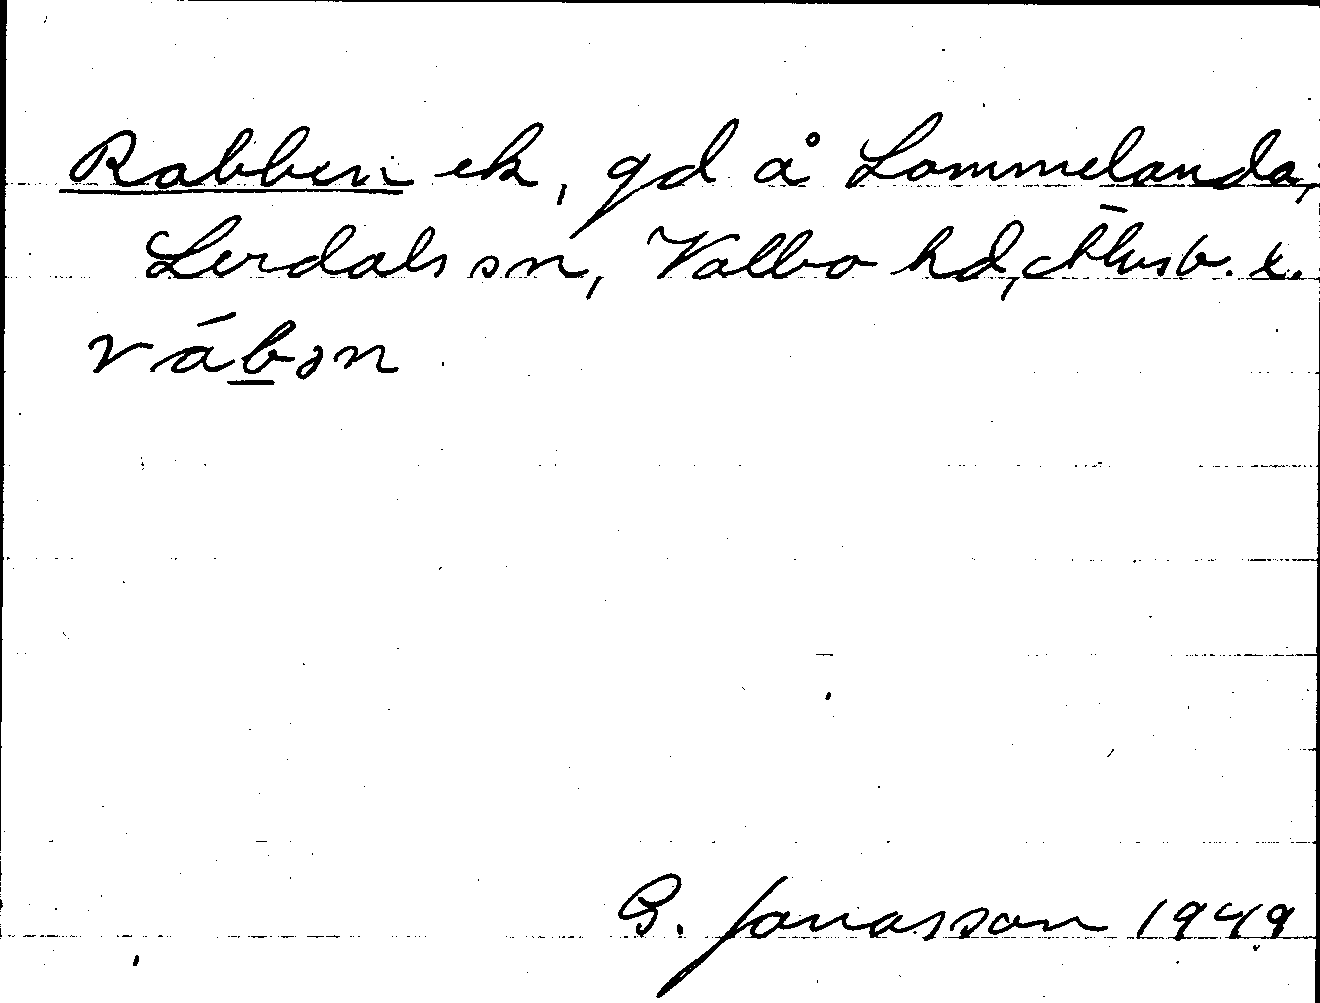 Rabben ek, gd å Lommelanda,
Lerdals sn, Valbo hd, Älvsb. l.
rábən
G. Jonasson 1949